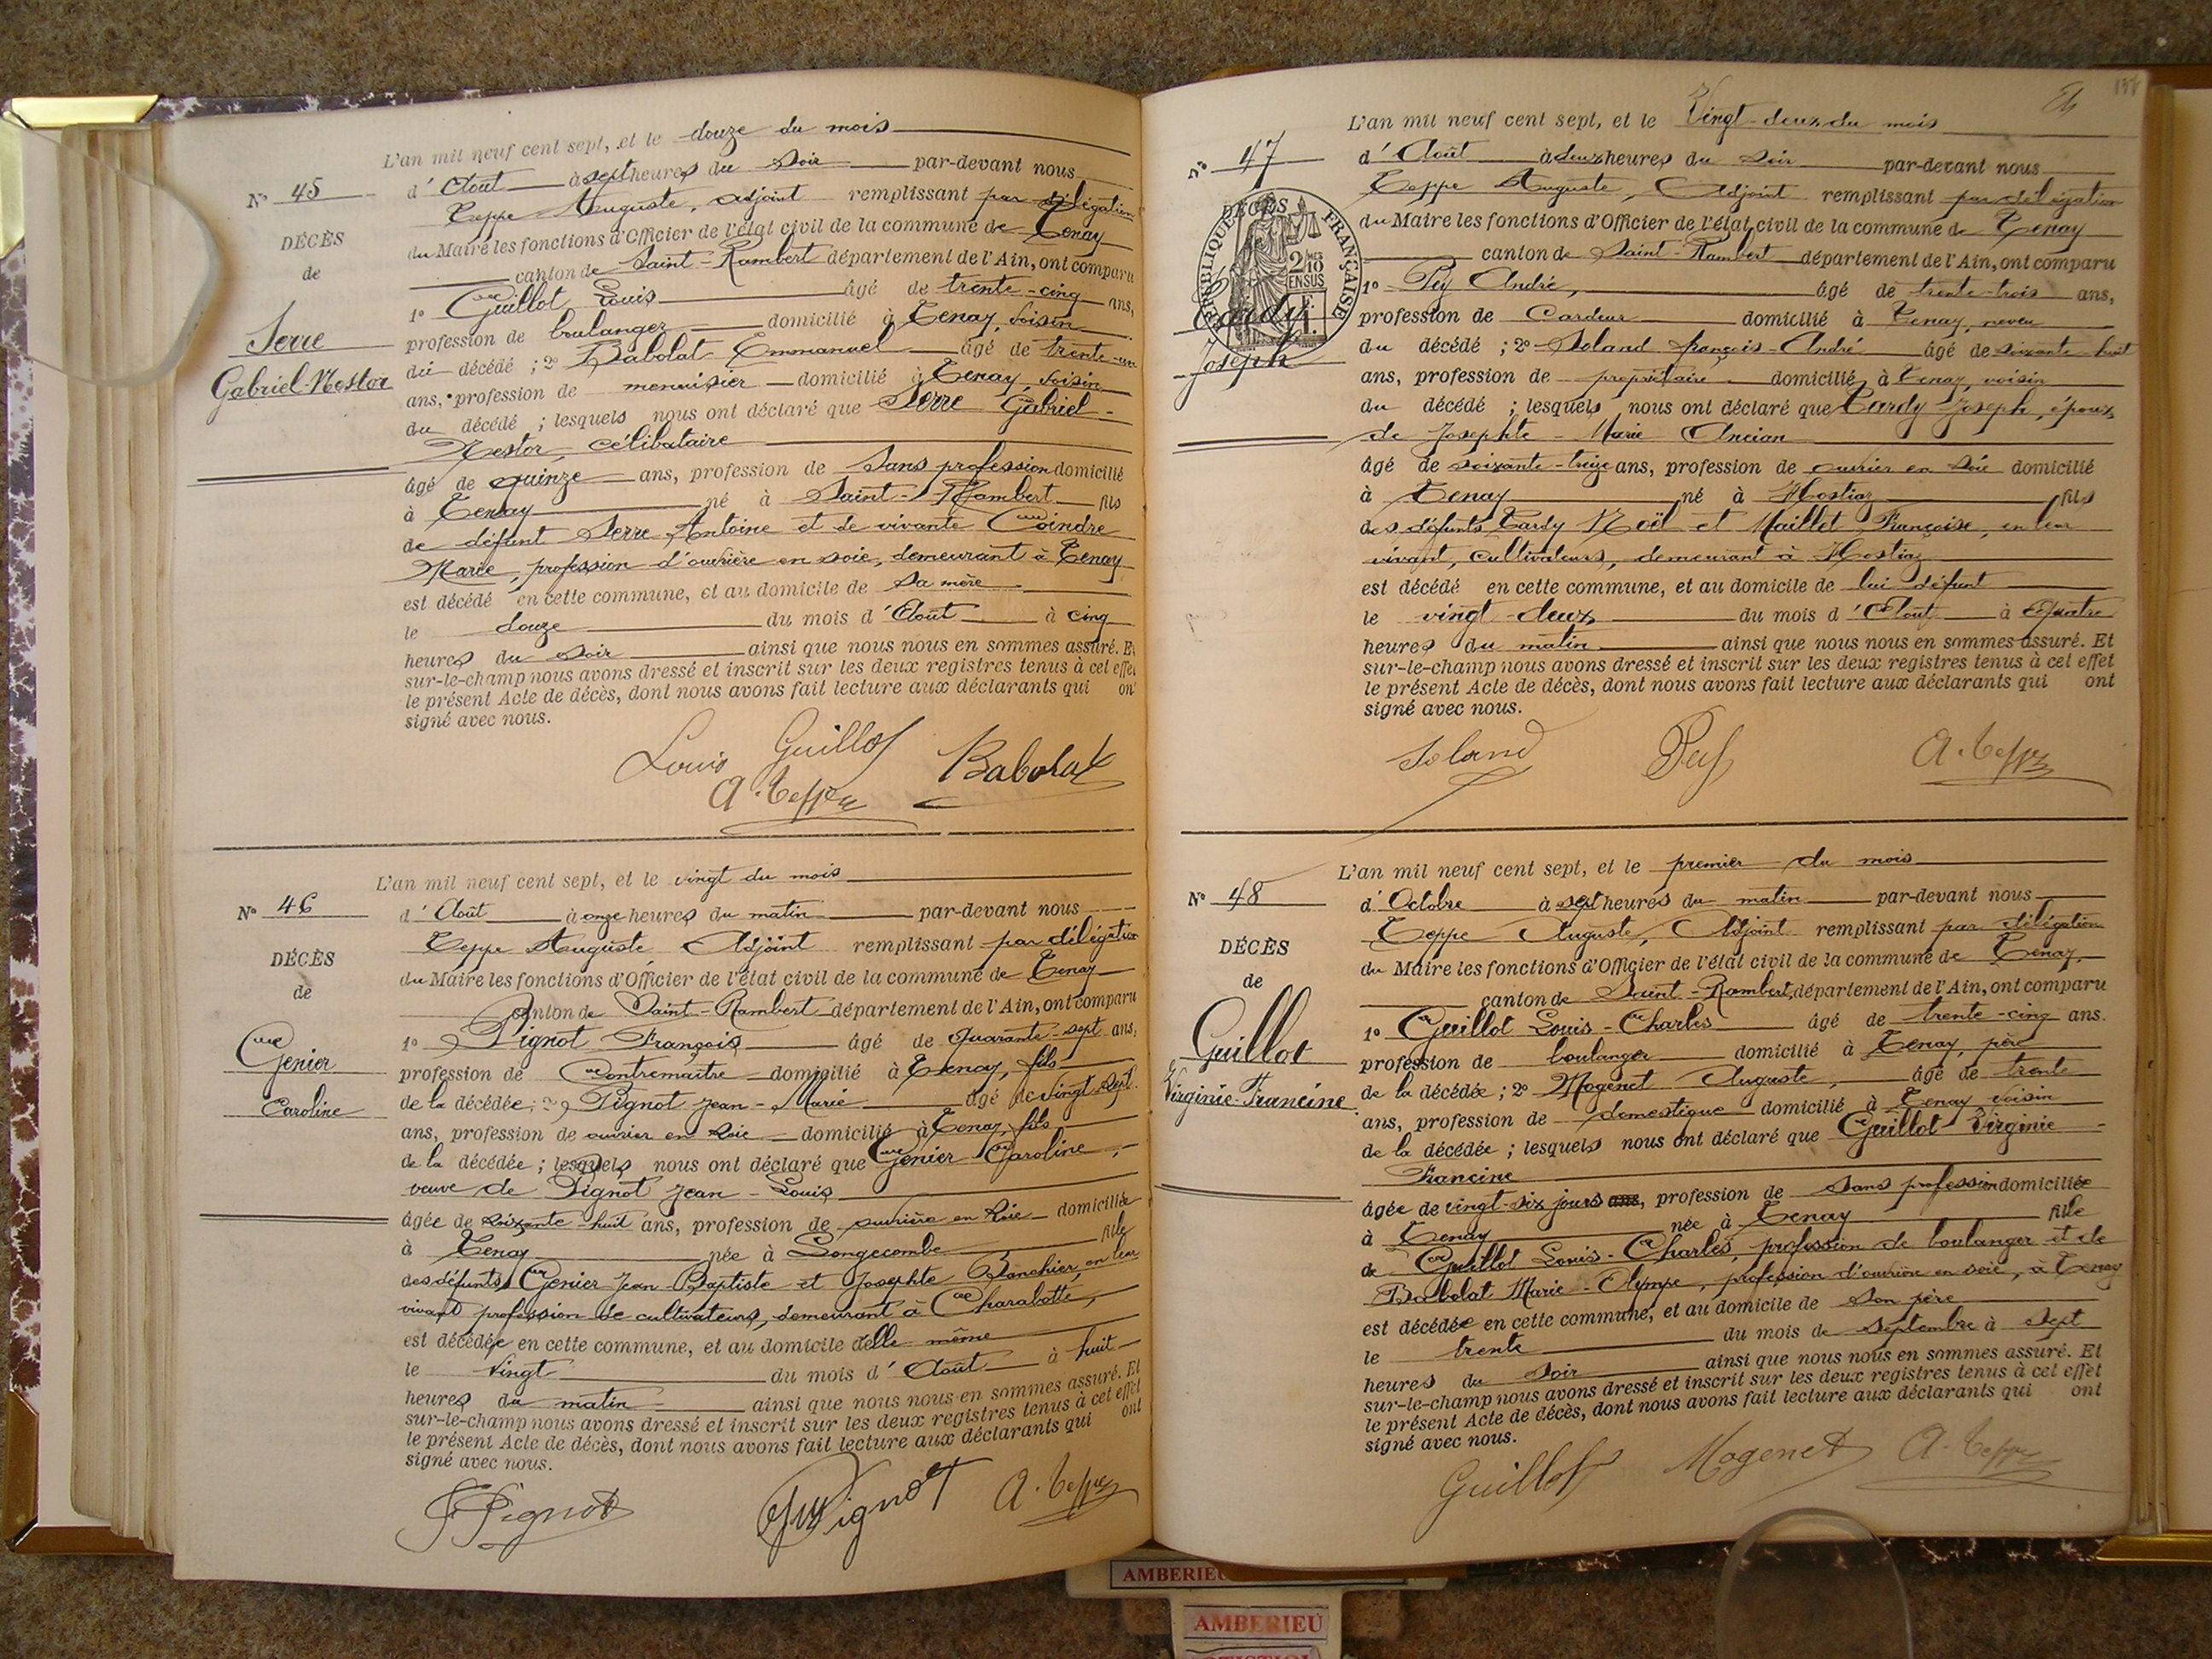 L'an mil neuf cent sept, et le douze du mois
N° 45
d'Août à sept heures du soir par-devant nous
Teppe Auguste, adjoint remplissant par délégation
DÉCÈS
du Maire les fonctions d'Officier de l'état civil de la commune de Tenay
de
canton de Saint-Rambert département de l'Ain, ont comparu
1° Guillot Louis âgé de trente-cinq ans,
Serre
Gabriel-Nestor
profession de boulanger domicilié à Tenay, voisin
du décédé ; 2° Babolat Emmanuel âgé de trente-un
ans, profession de menuisier domicilié à Tenay, voisin
du décédé ; lesquels nous ont déclaré que Serre Gabriel-
Nestor, célibataire
âgé de quinze ans, profession de sans profession domicilié
à Tenay né à Saint-Rambert fils
de défunt Serre Antoine et de vivante Coindre
Marie, profession d'ouvrière en soie, demeurant à Tenay
est décédé en cette commune, et au domicile de sa mère
le douze du mois d'Août à cinq
heures du soir ainsi que nous nous en sommes assuré. Et
sur-le-champ nous avons dressé et inscrit sur les deux registres tenus à cet effet
le présent Acte de décès, dont nous avons fait lecture aux déclarants qui ont
signé avec nous.
Louis Guillot Babolat
A. Teppe
L'an mil neuf cent sept, et le vingt du mois
N° 46
d'Août à onze heures du matin par-devant nous
Teppe Auguste Adjoint remplissant par délégation
DÉCÈS
du Maire les fonctions d'Officier de l'état civil de la commune de Tenay
de
canton de Saint-Rambert département de l'Ain, ont comparu
Genier
Caroline
1° Pignot François âgé de quarante-sept ans,
profession de Contremaître domicilié à Tenay, fils
de la décédée ; 2° Pignot Jean-Marie âgé de vingt-sept
ans, profession de ouvrier en soie domicilié à Tenay, fils
de la décédée ; lesquels nous ont déclaré que Genier Caroline,
veuve de Pignot Jean-Louis
âgée de soixante-huit ans, profession de ouvrière en soie domiciliée
à Tenay née à Longecombe fille
des défunts Genier Jean-Baptiste et Josephte Blanchier, en leur
vivant profession de cultivateurs, demeurant à Charabotte,
est décédée en cette commune, et au domicile d'elle même
le vingt du mois d'Août à huit
heures du matin ainsi que nous nous en sommes assuré. Et
sur-le-champ nous avons dressé et inscrit sur les deux registres tenus à cet effet
le présent Acte de décès, dont nous avons fait lecture aux déclarants qui ont
signé avec nous.
F Pignot JM Pignot A. Teppe
L'an mil neuf cent sept, et le Vingt-deux du mois
N° 47
d'Août à deux heures du soir par-devant nous
Teppe Auguste, Adjoint remplissant par délégation
DÉCÈS
RÉPUBLIQUE FRANÇAISE
2/10 EN SUS
du Maire les fonctions d'Officier de l'état civil de la commune de Tenay
canton de Saint-Rambert département de l'Ain, ont comparu
Tardy
Joseph
1° Pey André, âgé de trente-trois ans,
profession de Cardeur domicilié à Tenay, neveu
du décédé ; 2° Soland françois-André âgé de soixante-huit
ans, profession de propriétaire domicilié à Tenay, voisin
du décédé ; lesquels nous ont déclaré que Tardy Joseph, époux
de Josephte-Marie Ancian
âgé de soixante-treize ans, profession de ouvrier en soie domicilié
à Tenay né à Hostiaz fils
des défunts Tardy Noël et Maillet Françoise, en leur
vivant, cultivateurs, demeurant à Hostiaz
est décédé en cette commune, et au domicile de lui défunt
le vingt-deux du mois d'Août à quatre
heures du matin ainsi que nous nous en sommes assuré. Et
sur-le-champ nous avons dressé et inscrit sur les deux registres tenus à cet effet
le présent Acte de décès, dont nous avons fait lecture aux déclarants qui ont
signé avec nous.
Soland Pey A. Teppe
L'an mil neuf cent sept, et le premier du mois
N° 48
d'Octobre à sept heures du matin par-devant nous
Teppe Auguste, Adjoint remplissant par délégation
DÉCÈS
du Maire les fonctions d'Officier de l'état civil de la commune de Tenay,
de
canton de Saint-Rambert, département de l'Ain, ont comparu
Guillot
Virginie-Francine
1° Guillot Louis-Charles âgé de trente-cinq ans.
profession de boulanger domicilié à Tenay, père
de la décédée ; 2° Mogenet Auguste, âgé de trente
ans, profession de domestique domicilié à Tenay voisin
de la décédée ; lesquels nous ont déclaré que Guillot Virginie-
Francine
âgée de vingt-six jours ans, profession de sans profession domiciliée
à Tenay née à Tenay fille
de Guillot Louis-Charles, profession de boulanger et de
Babolat Marie-Olympe, profession d'ouvrière en soie, à Tenay
est décédée en cette commune, et au domicile de son père
le trente du mois de septembre à sept
heures du soir ainsi que nous nous en sommes assuré. Et
sur-le-champ nous avons dressé et inscrit sur les deux registres tenus à cet effet
le présent Acte de décès, dont nous avons fait lecture aux déclarants qui ont
signé avec nous.
Guillot Mogenet A. Teppe
AMBERIEU
AMBERIEU